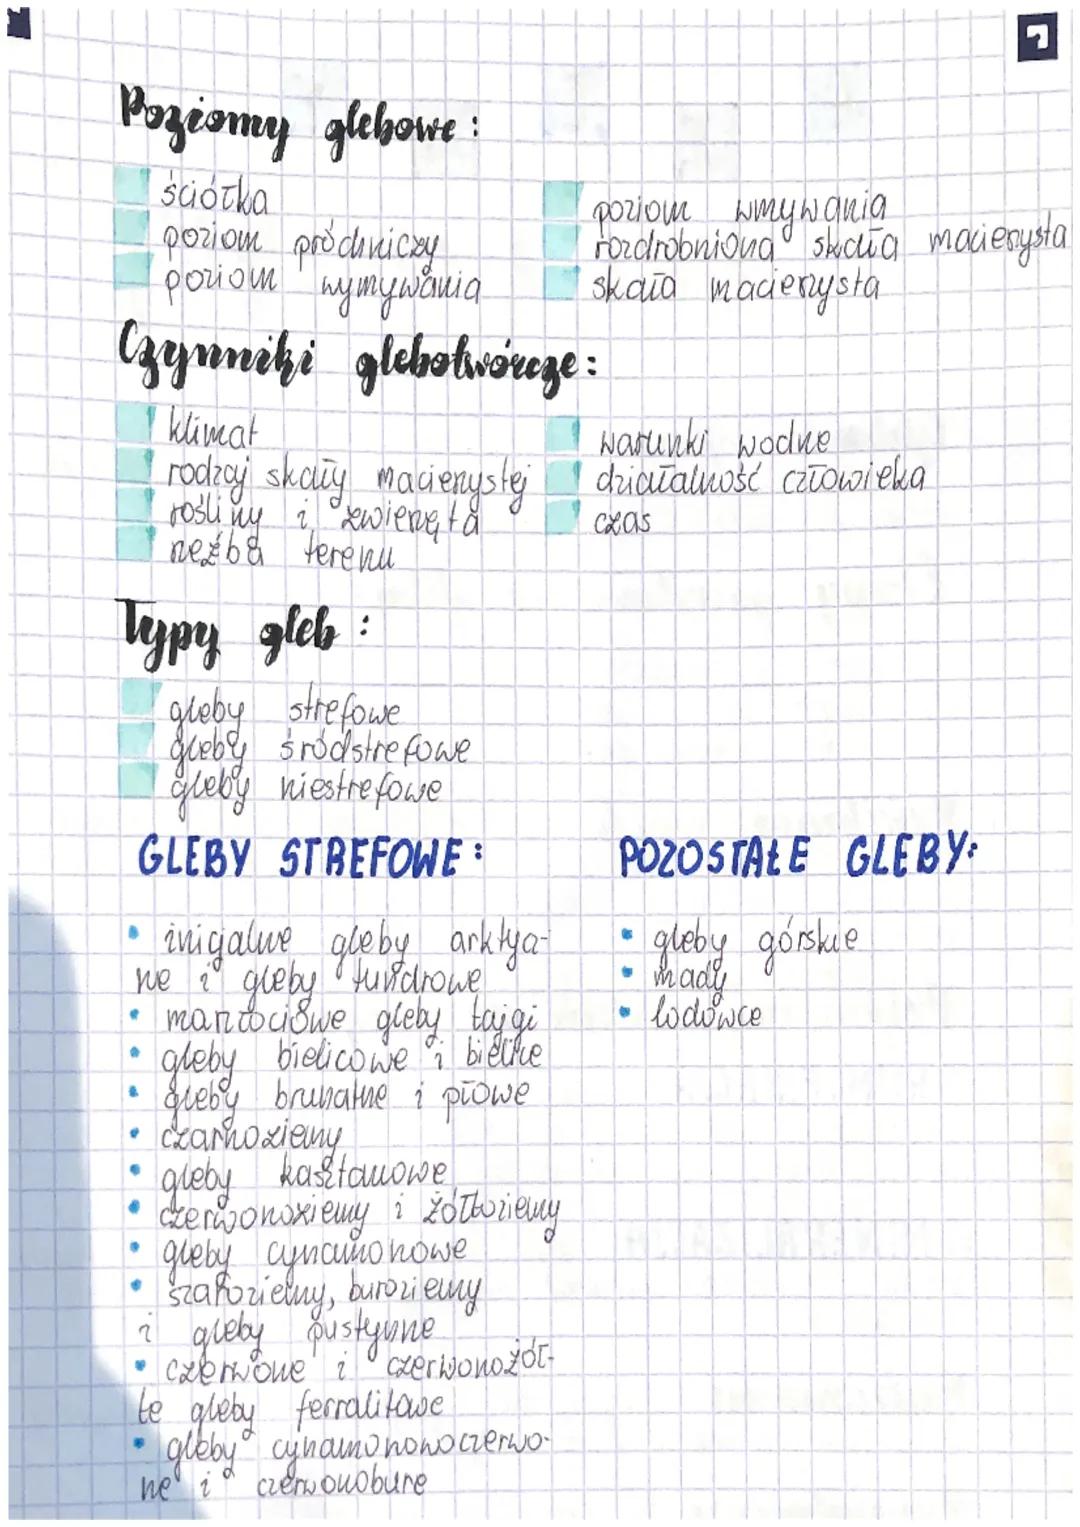 Poziomy glebowe:
ściółka
poziom próchniczy
poziom wymywania
poziom wmywania
rozdrobniona skała macierzysta
skała macierzysta
Czynniki glebotwórcze:
klimat
rodzaj skały macierzystej
rośliny i zwierzęta
rzeźba terenu
warunki wodne
działalność człowieka
czas
Typy gleb:
gleby strefowe
gleby śródstrefowe
gleby niestrefowe
GLEBY STREFOWE:
• inicjalne gleby arktycz-
ne i gleby tundrowe
• marzłociowe gleby tajgi
• gleby bielicowe i bielice
• gleby brunatne i płowe
• czarnoziemy
• gleby kasztanowe
• czerwonoziemy i żółtoziemy
• gleby cynamonowe
• szaroziemy, buroziemy
i gleby pustynne
• czerwone i czerwonożół-
te gleby ferralitowe
• gleby cynamonowoczerwo-
ne i czerwonobure
POZOSTAŁE GLEBY:
• gleby górskie
• mady
• lodowce